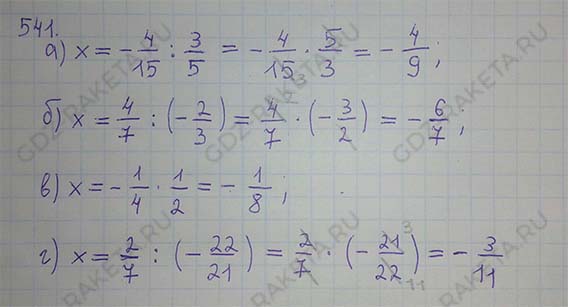 541.
а) x = -4/15 : 3/5 = -4/15 · 5/3 = -4/9;
б) x = 4/7 : (-2/3) = 4/7 · (-3/2) = -6/7;
в) x = -1/4 · 1/2 = -1/8;
г) x = 2/7 : (-22/21) = 2/7 · (-21/22) = -3/11
GDZ-RAKETA.RU